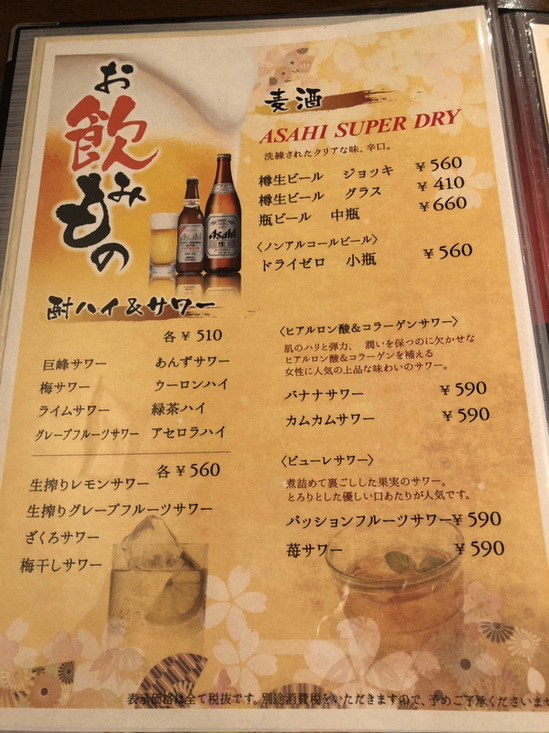 お飲みもの
麦酒
ASAHI SUPER DRY
洗練されたクリアな味、辛口。
樽生ビール ジョッキ ￥560
樽生ビール グラス ￥410
瓶ビール 中瓶 ￥660
〈ノンアルコールビール〉
ドライゼロ 小瓶 ￥560
Asahi
Asahi
生
酎ハイ&サワー
各￥510
巨峰サワー あんずサワー
梅サワー ウーロンハイ
ライムサワー 緑茶ハイ
グレープフルーツサワー アセロラハイ
各￥560
生搾りレモンサワー
生搾りグレープフルーツサワー
ざくろサワー
梅干しサワー
〈ヒアルロン酸&コラーゲンサワー〉
肌のハリと弾力、 潤いを保つのに欠かせな
ヒアルロン酸&コラーゲンを補える
女性に人気の上品な味わいのサワー。
バナナサワー ￥590
カムカムサワー ￥590
〈ピューレサワー〉
煮詰めて裏ごしした果実のサワー。
とろりとした優しい口あたりが人気です。
パッションフルーツサワー￥590
苺サワー ￥590
表示価格は全て税抜です。別途消費税をいただきますので、予めご了承くださいませ